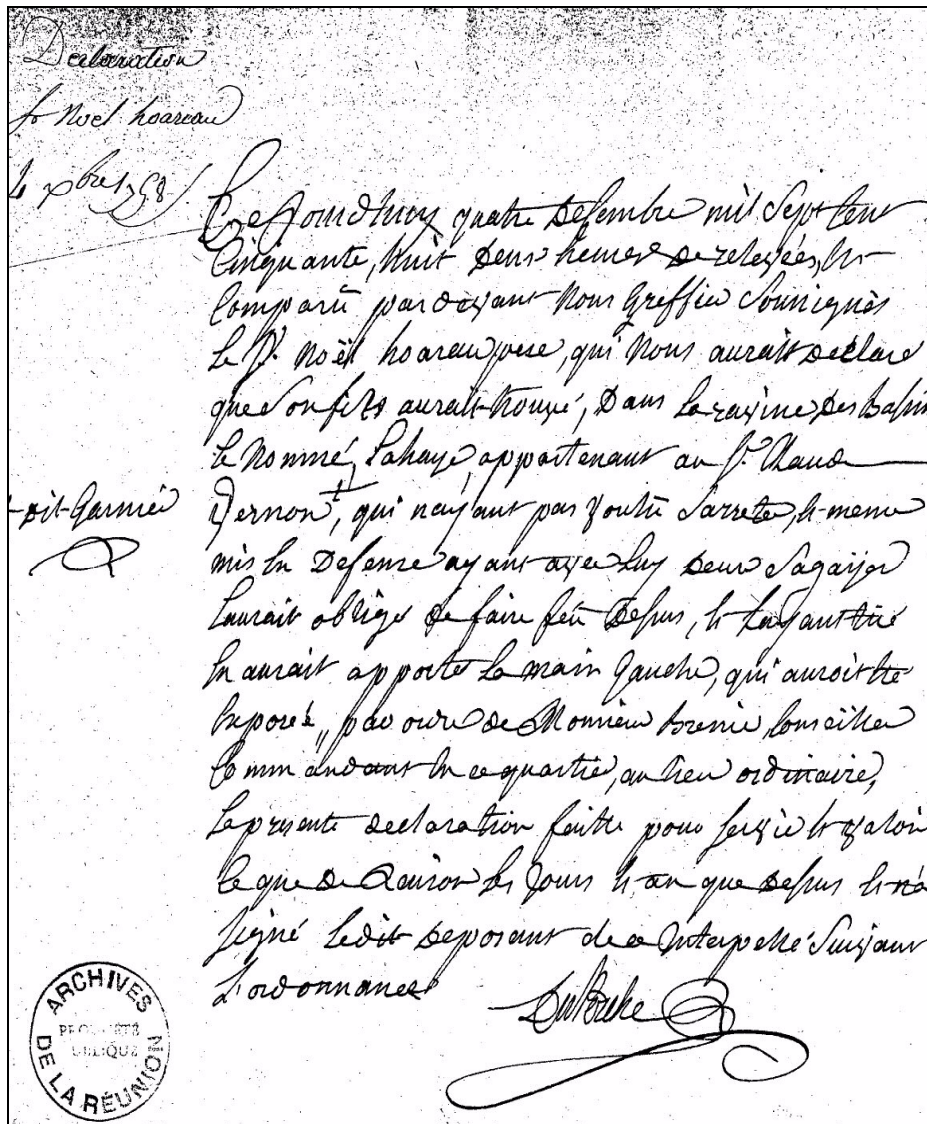 Declaration
Sr Noël hoareau
4 xbre 1758
Ce Jourdhuy quatre Desembre mil Sept Cent
Cinquante, huit Deux heures De relevées, Est
Comparü pardevant Nous Greffier Soussignés
Le Sr. Noël hoareau pere, qui Nous aurait Declare
que Son fils aurait trouvé, Dans La ravine Des Bassin
Le Nommé, Lahaye, appartenant au Sr. Claude
-dit-Garnié
Vernon +, qui nayant pas voulü Sarreter, Et meme
mis En Defense ayant avec Luy Deux Sagaijes
Laurait obligé De faire feü Desus, Et Layant tüé
En aurait apporté La main Gauche, qui auroit Eté
Exposée, par ordre de Monsieur Brenier, Conseiller
Commandant En ce quartier, au Lieu ordinaire,
La presente declaration faitte pour Servir Et valoir
Ce que De Raison Les Jours Et an que Desus Et n'a
Signé Ledit Deposant de ce Interpellé Suivant
L'ordonnance
ARCHIVES
PROPRIÉTÉ
PUBLIQUE
DE LA RÉUNION